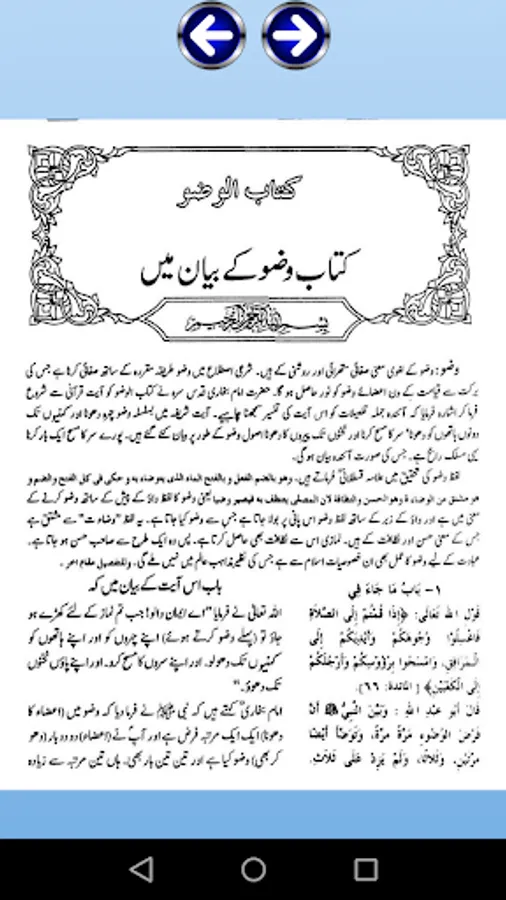 كتاب الوضو
کتاب وضو کے بیان میں
بسم اللہ الرحمن الرحیم
وضو : وضو کے لغوی معنی صفائی ستھرائی اور روشنی کے ہیں۔ شرعی اصطلاح میں وضو طریقہ مقررہ کے ساتھ صفائی کرنا ہے جس کی
برکت سے قیامت کے دن اعضائے وضو کو نور حاصل ہو گا۔ حضرت امام بخاری قدس سرہ نے کتاب الوضو کو آیت قرآنی سے شروع
فرما کر اشارہ فرمایا کہ آئندہ جملہ تفصیلات کو اس آیت کی تفسیر سمجھنا چاہیے۔ آیت شریفہ میں بسلسلہ وضو چہرہ دھونا اور کہنیوں تک
دونوں ہاتھوں کو دھونا' سر کا مسح کرنا اور ٹخنوں تک پیروں کا دھونا اصول وضو کے طور پر بیان کئے گئے ہیں۔ پورے سر کا مسح ایک بار کرنا
یہی مسلک راجح ہے۔ جس کی صورت آئندہ بیان ہو گی۔
لفظ وضو کی تحقیق میں علامہ قسطلانیؒ فرماتے ہیں۔ وهو بالضم الفعل و بالفتح الماء الذی یتوضاء به و حکی فی کل الفتح والضم و
هو مشتق من الوضاءة وهو الحسن والنظافة لان المصلی یتنظف به فیصیر وضیا یعنی وضو کا لفظ واؤ کے پیش کے ساتھ وضو کرنے کے
معنی میں ہے اور واؤ کے زبر کے ساتھ لفظ وضو اس پانی پر بولا جاتا ہے جس سے وضو کیا جاتا ہے۔ یہ لفظ "وضاءت" سے مشتق ہے
جس کے معنی حسن اور نظافت کے ہیں۔ نمازی اس سے نظافت بھی حاصل کرتا ہے۔ پس وہ ایک طرح سے صاحب حسن ہو جاتا ہے۔
عبادت کے لیے وضو کا عمل بھی ان خصوصیات اسلام سے ہے جس کی نظیر مذاہب عالم میں نہیں ملے گی۔
١- بَابُ مَا جَاءَ فِي
قَوْلِ اللهِ تَعَالَى: ﴿إِذَا قُمْتُمْ إِلَى الصَّلاَةِ
فَاغْسِلُوا وُجُوهَكُمْ وَأَيْدِيَكُمْ إِلَى
الْمَرَافِقِ، وَامْسَحُوا بِرُؤُوسِكُمْ وَأَرْجُلَكُمْ
إِلَى الْكَعْبَيْنِ﴾ [المائدة: ٦٦].
قَالَ أَبُو عَبْدِ اللهِ : وَبَيَّنَ النَّبِيُّ ﷺ أَنَّ
فَرْضَ الْوُضُوءِ مَرَّةً مَرَّةً، وَتَوَضَّأَ أَيْضًا
مَرَّتَيْنِ، وَثَلاَثًا، وَلَمْ يَزِدْ عَلَى ثَلاَثٍ.
باب اس آیت کے بیان میں کہ
اللہ تعالیٰ نے فرمایا "اے ایمان والو! جب تم نماز کے لئے کھڑے ہو
جاؤ تو (پہلے وضو کرتے ہوئے) اپنے چہروں کو اور اپنے ہاتھوں کو
کہنیوں تک دھو لو۔ اور اپنے سروں کا مسح کرو۔ اور اپنے پاؤں ٹخنوں
تک دھوؤ۔"
امام بخاریؒ کہتے ہیں کہ نبی ﷺ نے فرما دیا کہ وضو میں (اعضاء کا
دھونا) ایک ایک مرتبہ فرض ہے اور آپ نے (اعضاء) دو دو بار (دھو
کر بھی) وضو کیا ہے اور تین تین بار بھی۔ ہاں تین مرتبہ سے زیادہ